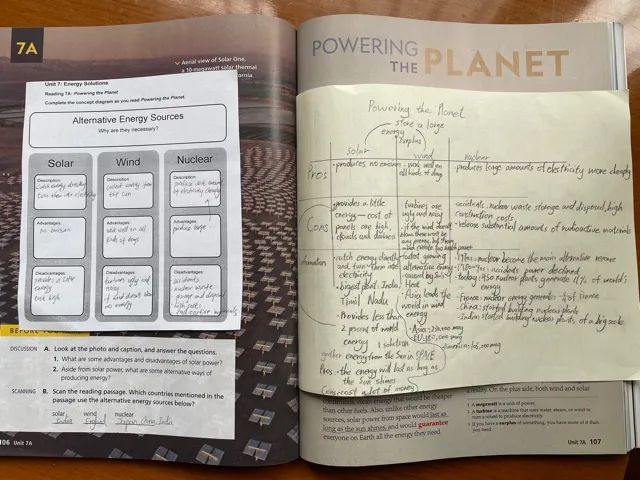 7A
Aerial view of Solar One,
a 10-megawatt solar thermal
Unit 7: Energy Solutions
Reading 7A: Powering the Planet
Complete the concept diagram as you read Powering the Planet.
Alternative Energy Sources
Why are they necessary?
Solar
Wind
Nuclear
Description:
catch energy directly
turn then into electricity
Description:
collect energy from
the sun
Description:
Advantages:
no emission
Advantages:
work well on all
kinds of days
Advantages:
produce large
Disadvantages:
provides a little
energy
cost high
Disadvantages:
turbines ugly and
noisy
if wind doesn't blow
no energy
Disadvantages:
accidents
nuclear waste
storage and disposal
high costs
radioactive materials
DISCUSSION A. Look at the photo and caption, and answer the questions.
1. What are some advantages and disadvantages of solar power?
2. Aside from solar power, what are some alternative ways of
producing energy?
SCANNING B. Scan the reading passage. Which countries mentioned in the
passage use the alternative energy sources below?
solar wind nuclear
India England Japan, China, India
106 Unit 7A
POWERING
THE PLANET
Powering the Planet
store a large
energy
surplus
solar
wind
nuclear
Pros
produces no emission
work well on
all kinds of days
produces large amounts of electricity more cheaply
Cons
provides a little
energy
cost of
panels are high
clouds and darkness
turbines are
ugly and noisy
if the wind doesn't
blow there won't be
any energy, but then
wind create too much power
accidents, nuclear waste storage and disposal, high
construction costs
releases substantial amounts of radioactive materials
catch energy directly
and turn then into
electricity
biggest plant: India,
Timil Nadu
Provides less than
2 percent of world
energy
1 solution
gather energy from the Sun in SPACE
Pros - the energy will last as long as
the sun shines
Cons: cost a lot of money
fastest growing
alternative energy
caused by Sun's
Heat
Asia leads the
world in wind
energy
Asia:
EU:
Americas:
1970s: nuclear become the main alternative source
accidents power declined
today: 450 nuclear plants generate 11% of world's
energy
France: nuclear energy generates
China: started building nuclear plants
India: started building nuclear plants of a big scale
than other fuels. Also, unlike other energy
sources, solar power from space would last as
long as the sun shines, and would guarantee
everyone on Earth all the energy they need.
On the plus side, both wind and solar
1 A megawatt is a unit of power.
2 A turbine is a machine that uses water, steam, or wind to
turn a wheel to produce electricity.
3 If you have a surplus of something, you have more of it than
you need.
Unit 7A 107